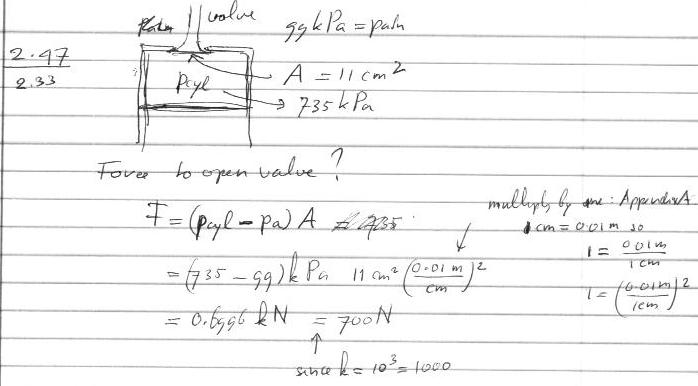 valve
99 kPa = patm
2.47
2.33
A = 11 cm²
Pcyl
735 kPa
Force to open valve?
F = (pcyl - pa) A
= (735 - 99) k Pa 11 cm² (0.01 m / cm)²
= 0.6996 kN = 700 N
since k = 10³ = 1000
multiply by one: Appendix A
1 cm = 0.01 m so
1 = 0.01m / 1cm
1 = (0.01m / 1cm)²